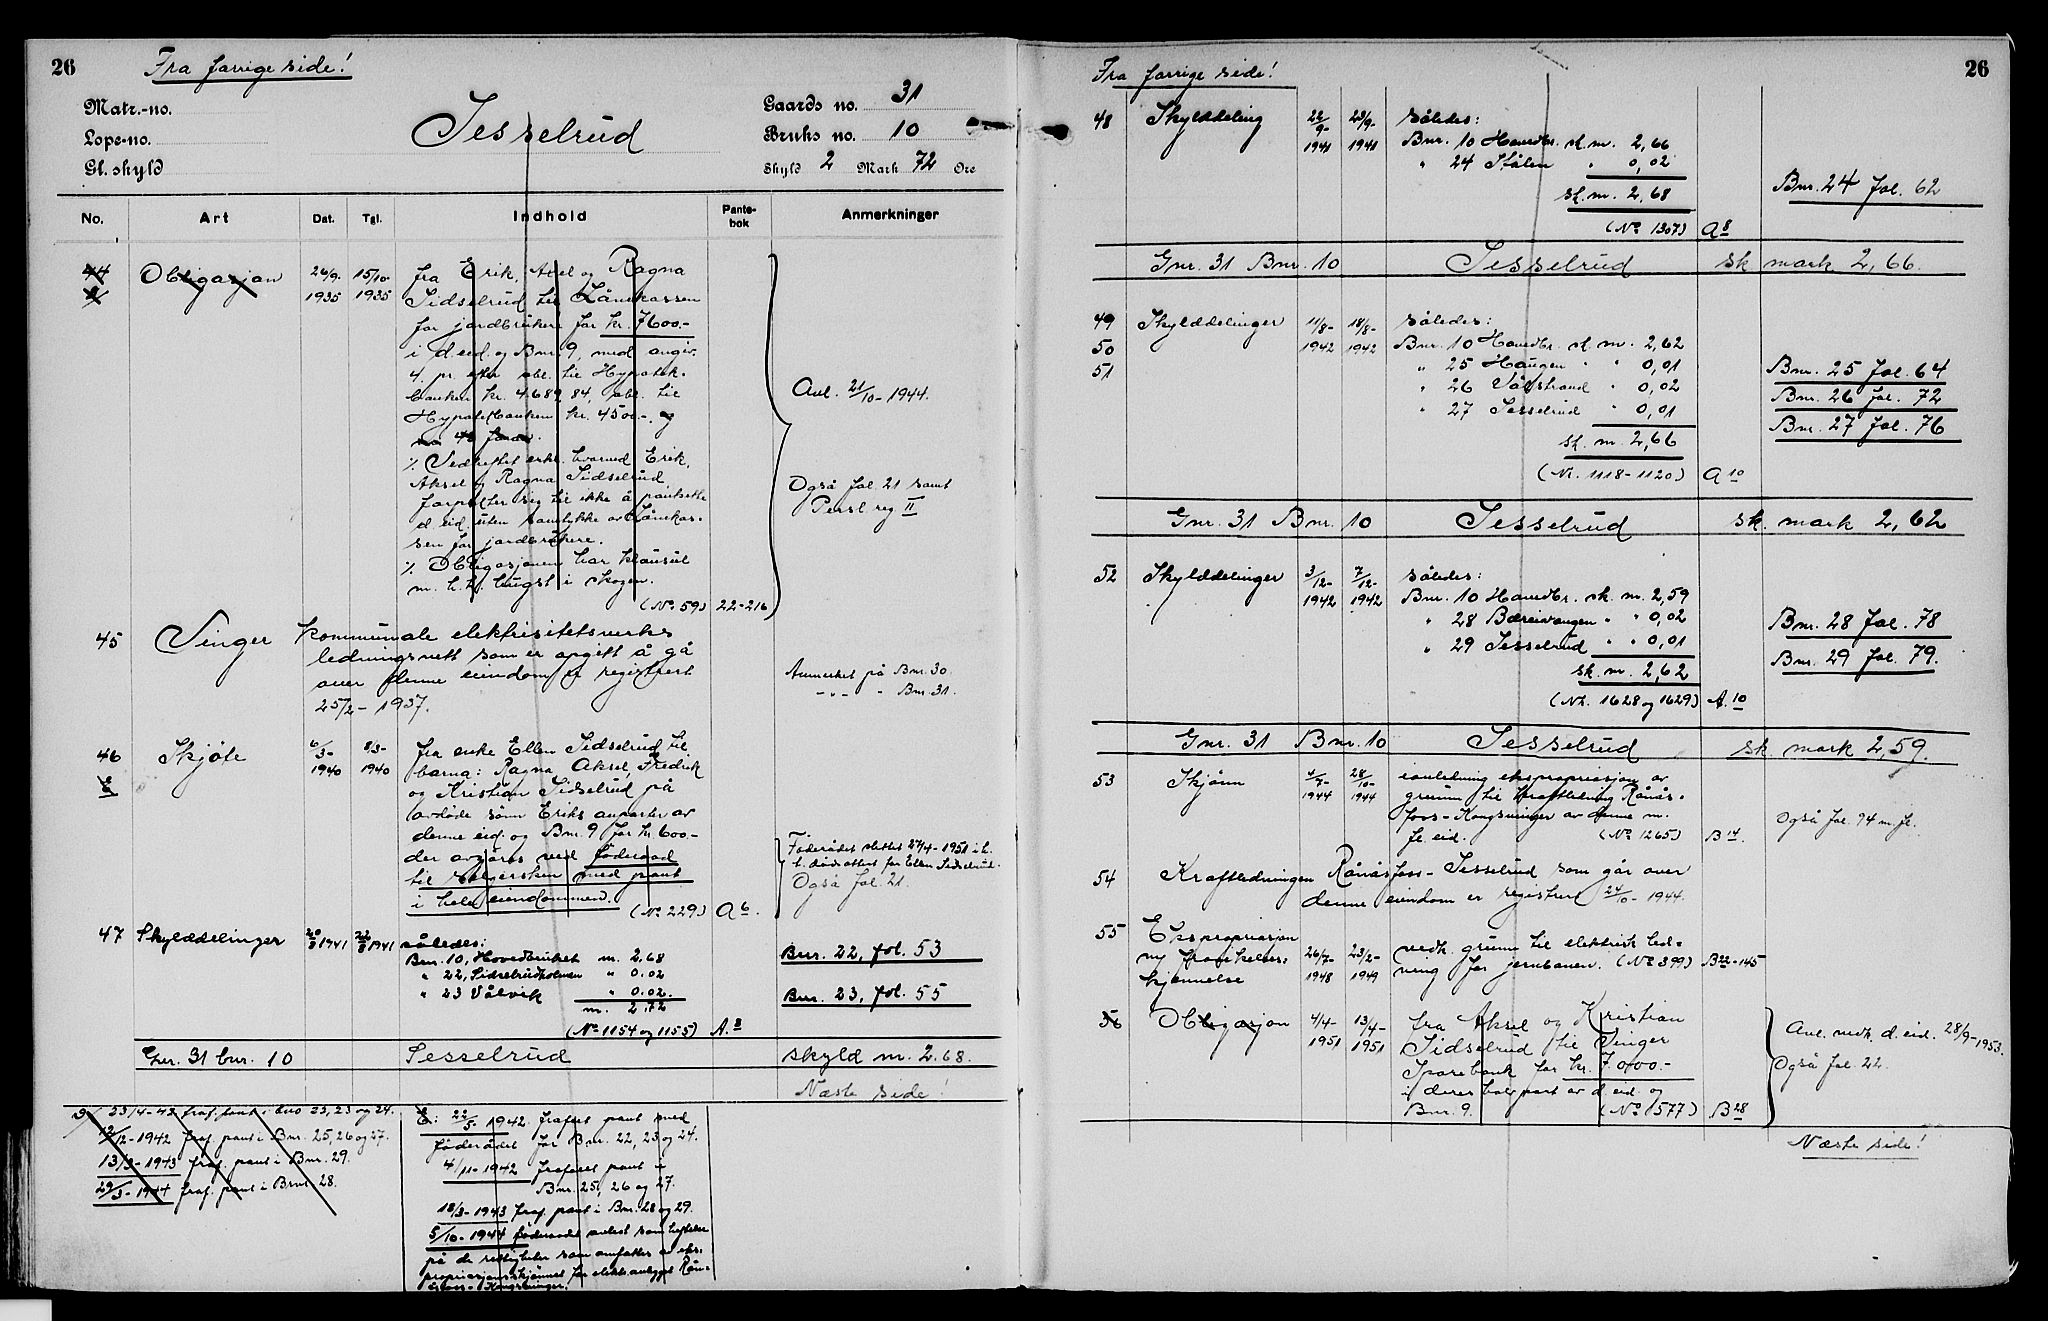 26
Fra forrige side!
Matr.-no.
Løpe-no.
Gl. skyld
Sesselrud
Gaards no. 31
Bruks no. 10
Skyld 2 Mark 72 Øre
No. Art Dat. Tgl. Indhold Pante-bok Anmerkninger
44 Obligasjon 26/9- 1935 15/10- 1935 fra Erik, Axel og Ragna
Sidselrud til Lånekassen
for jordbrukere for kr. 7600.-
i d. eid. og Bnr. 9, med angiv.
4. pr. efter obl. til Hypotek-
banken kr. 4689,84, obl. til
Hypotekbanken kr. 4500.-. og
% Vedheftet erkl. hvorved Erik,
Aksel og Ragna Sidselrud
forplikter sig til ikke å pantsette
d. eid. uten samtykke av Lånekas-
sen for jordbrukere.
% Obligasjonen har klausul
m. h. t. hugst i skogen.
(No 59) 22-216
Avl. 21/10- 1944.
Også fol. 21 samt
Persl. reg II
45 Vinger kommunale elektrisitetsverks
ledningsnett som er opgitt å gå
over denne eiendom er registrert
25/2 - 1937.
Anmerket på Bnr. 30.
-"- " Bnr. 31.
46 Skjøte 6/3- 1940 8/3- 1940 fra enke Ellen Sidselrud til
barna: Ragna, Aksel, Fredrik
og Kristian Sidselrud på
avdøde sønn Eriks anparter av
denne eid. og Bnr. 9 for kr. 600.-
der avgjøres ved føderaad
til selgersken med pant
i hele eiendommen.
(No 229) A 6.
Føderådet slettet 27/4- 1951 i h.
t. dødsattest for Ellen Sidselrud.
Også fol. 21.
47 Skylddelinger 20/8 1941 22/8 1941 således:
Bnr. 10, Hovedbruket m. 2.68
" 22, Sidselrudholmen " 0.02
" 23 Vålvik " 0.02.
m. 2.72
(No 1154 og 1155) A. 8
Bnr. 22, fol. 53
Bnr. 23, fol. 55
Gnr. 31 bnr. 10 Sesselrud skyld m. 2.68.
Næste side!
12/12- 1942 fraf. pant i Bnr. 25, 26 og 27.
13/3- 1943 fraf. pant i Bnr. 29.
29/3- 1944 fraf. pant i Bnr. 28.
E: 22/5- 1942 frafaret pant med
føderådet for Bnr. 22, 23 og 24.
4/11-1942 frafaret pant i
Bnr. 25, 26 og 27.
18/3- 1943 fraf. pant i Bnr. 28 og 29.
5/10- 1944 føderaadet slettet som heftelse
på de rettigheter som omfattes av eks-
propriasjonsskjønnet for elekt. anlegget Rån-
åsfoss - Kongsvinger.
26
Fra forrige side!
48 Skylddeling 22/9- 1941 23/9- 1941 således:
Bnr. 10 Hovedbr. sk. m. 2,66
" 24 Stålen " 0,02
sk. m. 2,68
(No 1307) A 8
Bnr. 24 fol. 62
Gnr. 31 Bnr. 10 Sesselrud sk mark 2,66.
49 Skylddelinger 11/8- 1942 18/8- 1942 således:
50 Bnr. 10 Hovedbr. sk. m. 2,62
51 " 25 Haugen " " 0,01
" 26 Vålstrand " 0,02
" 27 Sesselrud " 0,01
sk. m. 2,66
(Nr. 1118-1120) A 10
Bnr. 25 fol. 64
Bnr. 26 fol. 72
Bnr. 27 fol. 76
Gnr. 31 Bnr. 10 Sesselrud sk. mark 2,62
52 Skylddelinger 3/12- 1942 7/12- 1942 således:
Bnr. 10 Hovedbr. sk. m. 2,59
" 28 Bæreivangen " " 0,02
" 29 Sesselrud " " 0,01
sk. m. 2,62
(Nr. 1628 og 1629) A. 10
Bnr. 28 fol. 78
Bnr. 29 fol. 79.
Gnr. 31 Bnr. 10 Sesselrud sk. mark 2,59.
53 Skjønn 4/7- 1944 28/10- 1944 i anledning ekspropriasjon av
grunn til kraftledning Rånås-
foss - Kongsvinger av denne m.
fl. eid. (No 1265) B 14.
Også fol. 94 m. fl.
54 Kraftledningen Rånåsfoss - Sesselrud som går over
denne eiendom er registrert 24/10- 1944.
55 Ekspropriasjon
og kravikelses-
kjennelse 26/7- 1948 23/2- 1949 vedk. grunn til elektrisk led-
ning for jernbanen. (No 399) B 22-145
56 Obligasjon 4/4- 1951 13/4- 1951 fra Aksel og Kristian
Sidselrud til Vinger
Sparebank for kr. 7000.-
i deres halvpart av d. eid. og
Bnr. 9. (No 1577) B 28
Avl. vedk. d. eid. 28/9-1953.
Også fol. 22.
Næste side!